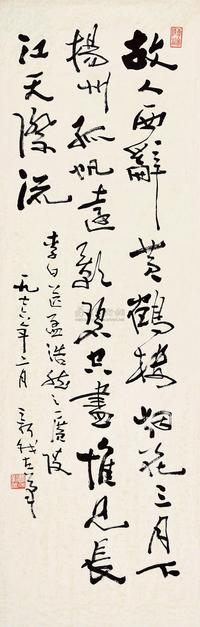 故人西辭黃鶴樓烟花三月下
揚州孤帆遠影碧空盡惟見長
江天際流
李白送孟浩然之廣陵
一九七六年二月
新我左筆